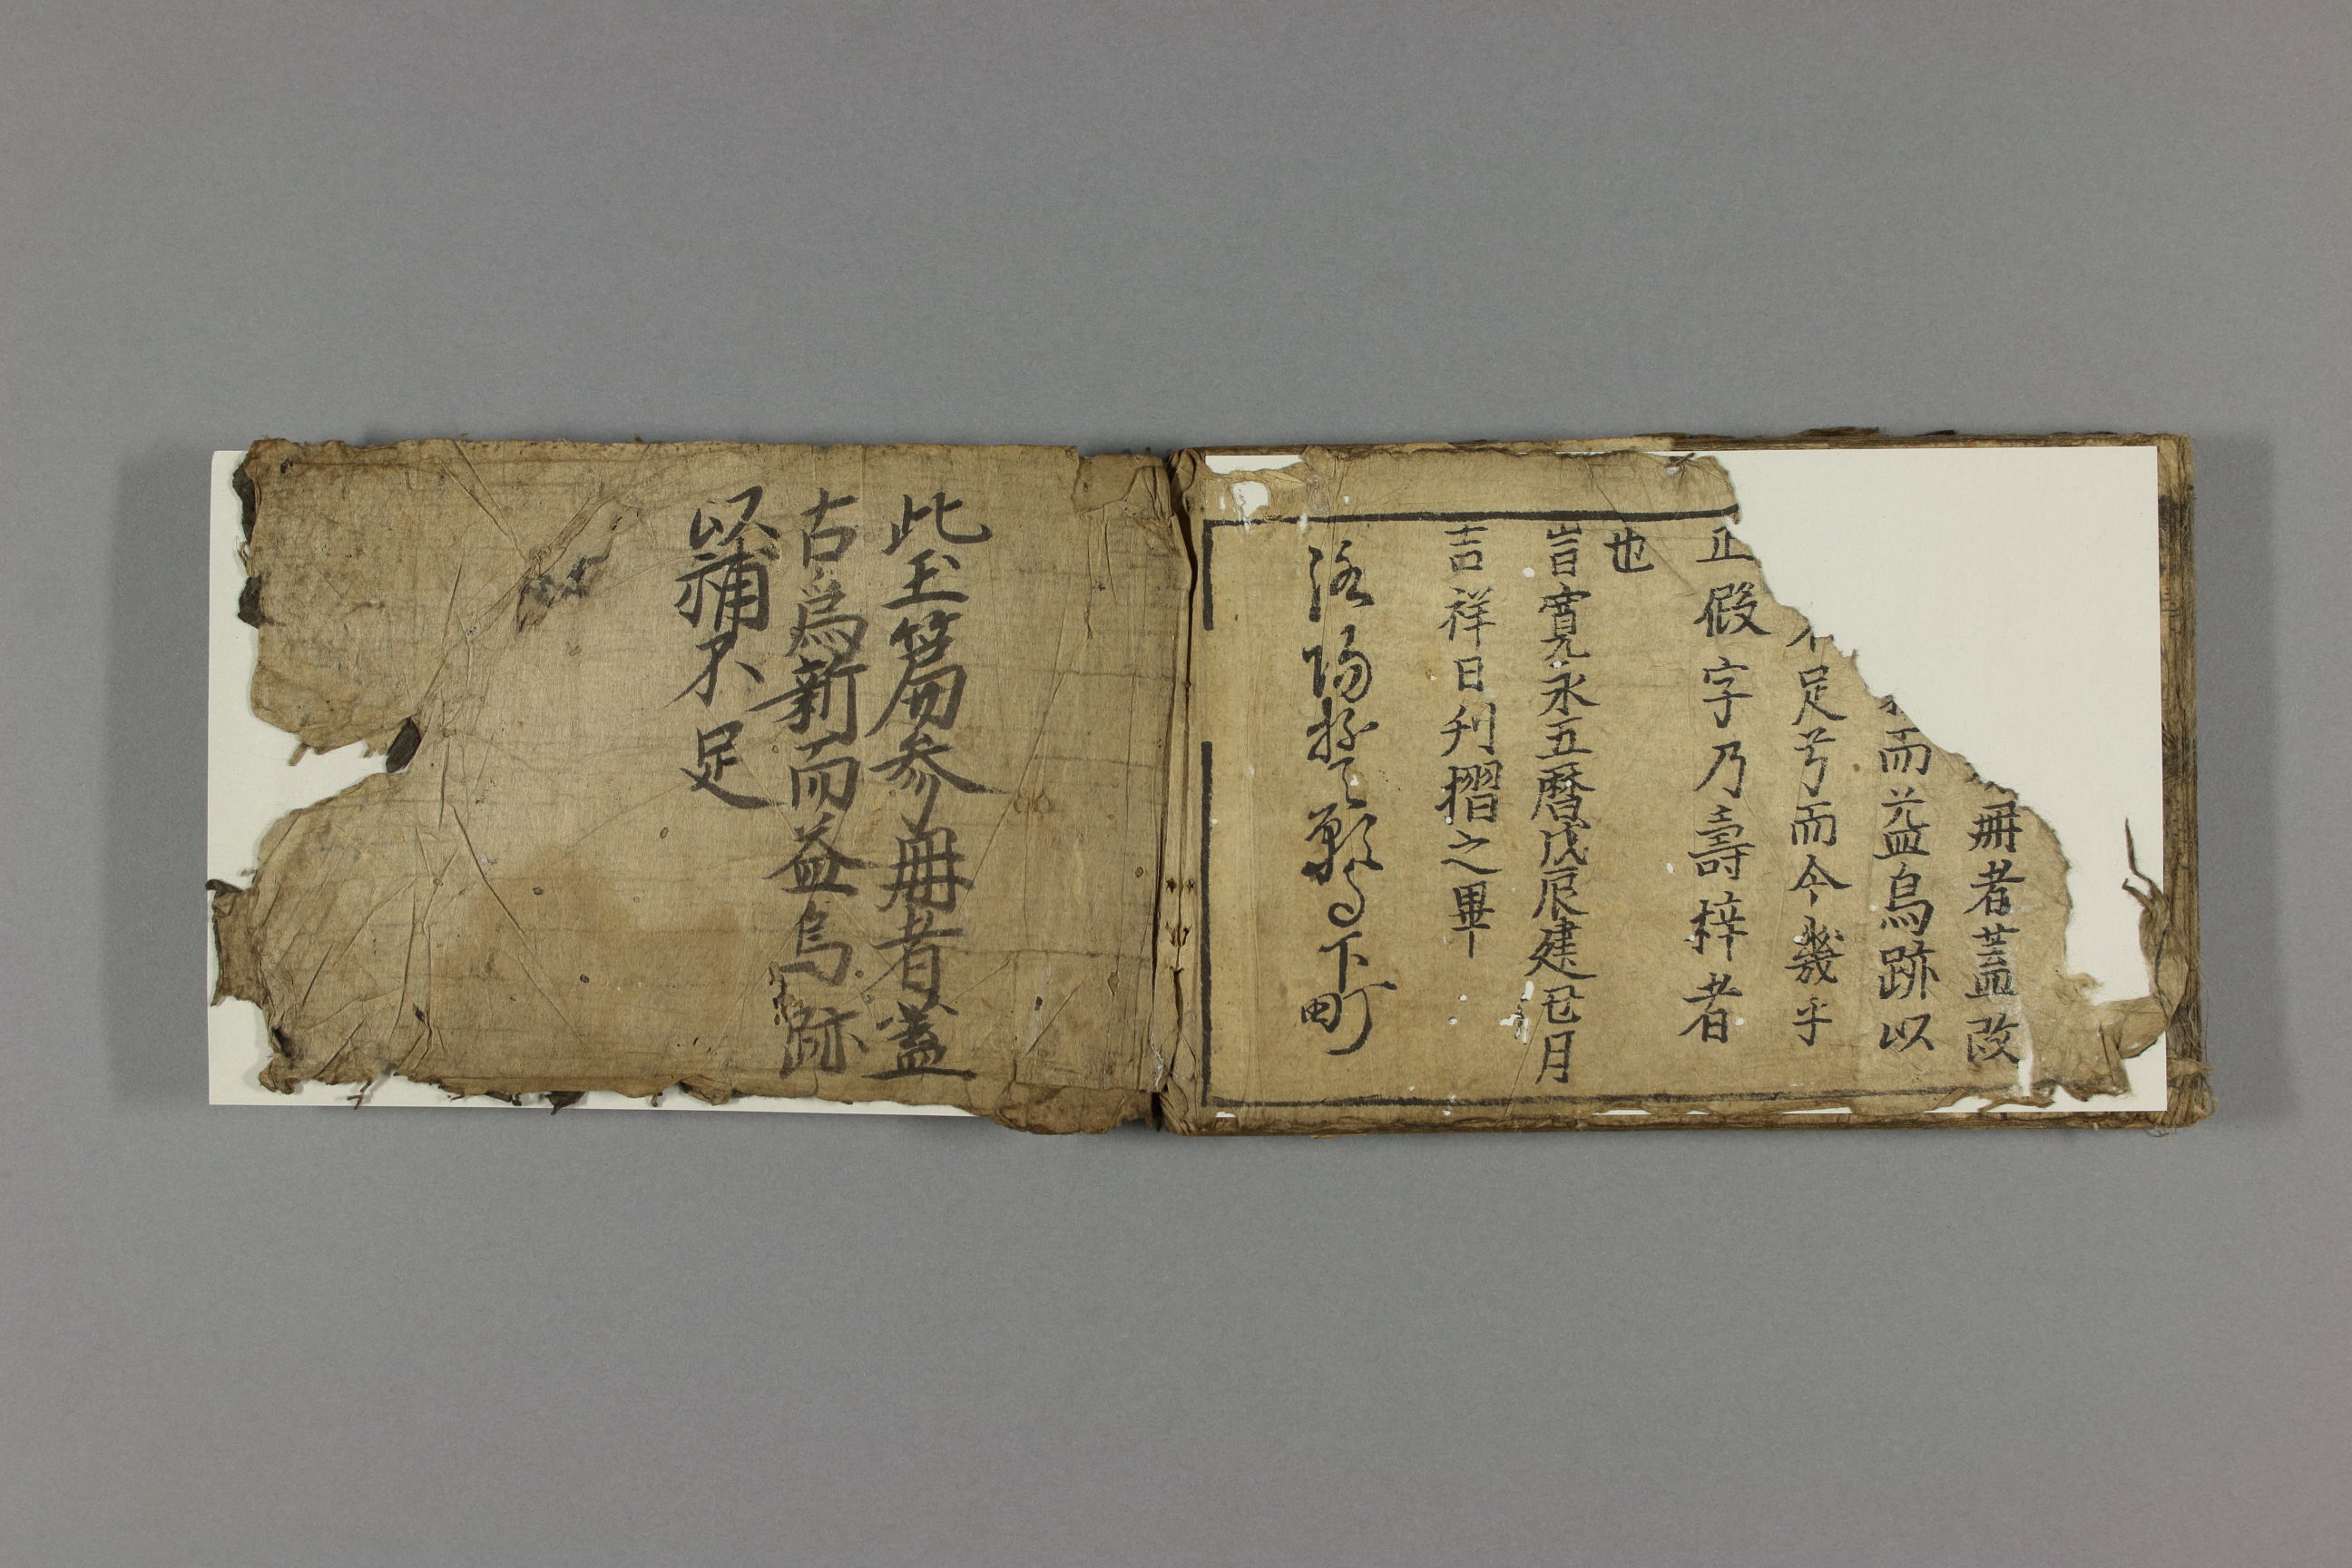 冊者蓋改
而益烏跡以
不足兮而今幾乎
正假字乃壽梓者
也
旹寛永五暦戊辰建巳月
吉祥日刋摺之畢
洛陽
下町
此玉篇参冊者蓋
古爲新而益烏跡
以補不足